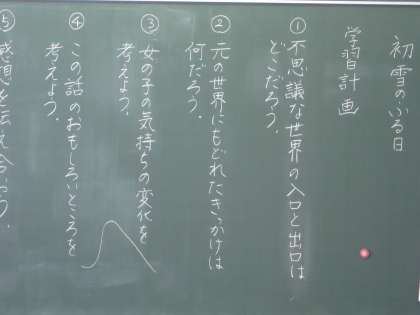 初雪のふる日
学習計画
①不思議な世界の入口と出口は
どこだろう。
②元の世界にもどれたきっかけは
何だろう。
③女の子の気持ちの変化を
考えよう。
④この話のおもしろいところを
考えよう。
⑤感想を伝え合おう。